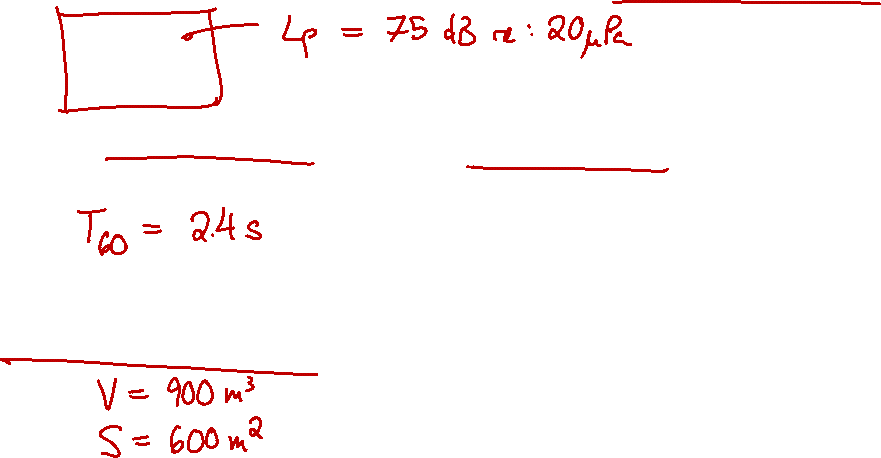 Lp = 75 dB re : 20μPa
T60 = 2.4 s
V = 900 m³
S = 600 m²